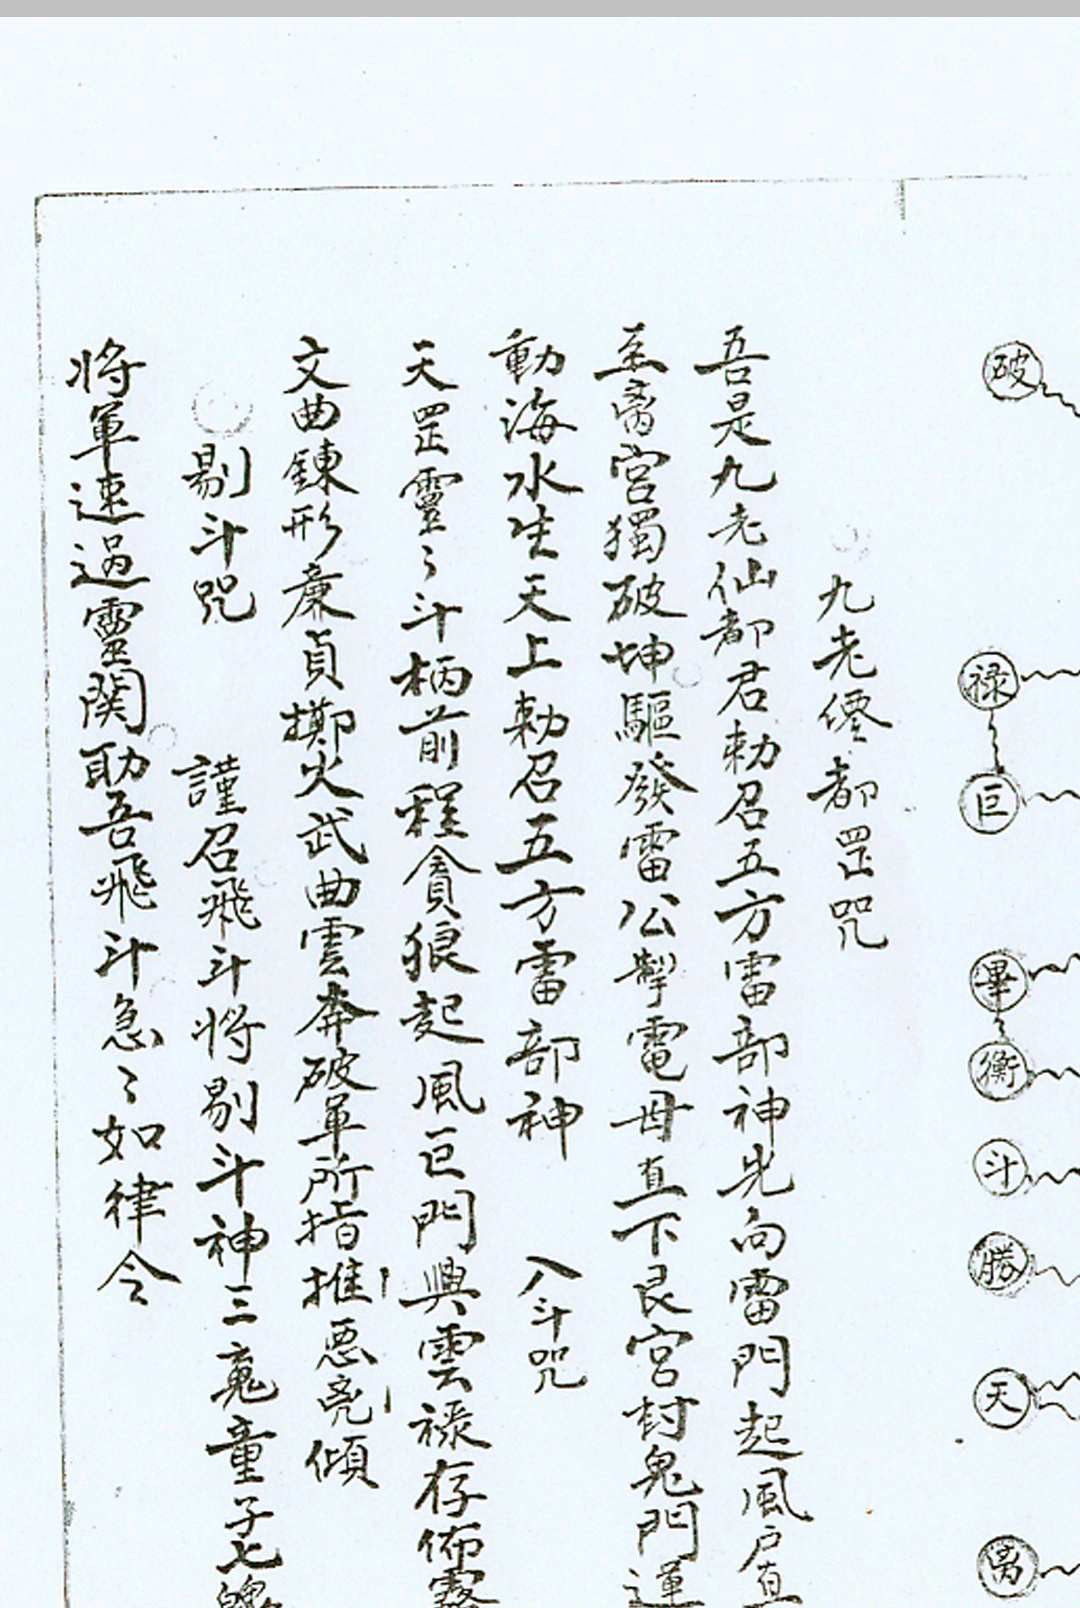 破
禄
巨
畢
衡
斗
勝
天
禹
九老僊都罡咒
吾是九老仙都君勅召五方雷部神先向雷門起風户直
至离宮獨破坤驅發雷公掣電母直下艮宮封鬼門運
動海水生天上勅召五方雷部神 入斗咒
天罡靈〻斗柄前程貪狼起風巨門興雲禄存佈霧
文曲鍊形廉貞擲火武曲雲奔破軍所指摧惡亮傾
剔斗咒 謹召飛斗將剔斗神三䰟童子七魄
將軍速過靈関助吾飛斗急〻如律令